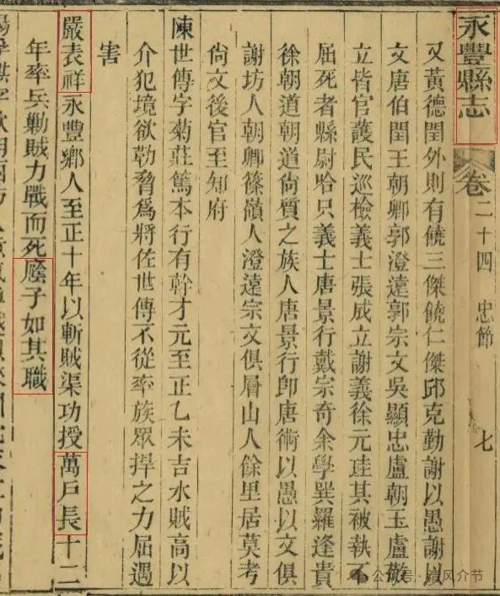 永豐縣志
卷二十四 忠節
七
又黃德閏外則有饒三傑饒仁傑邱克勤謝以愚謝以
文唐伯閏王朝卿郭澄遠郭宗文吳顯忠盧朝玉盧敬
立皆官護民巡檢義士張成立謝義徐元珪其被執不
屈死者縣尉哈只義士唐景行戴宗奇余學巽羅逢貴
徐朝道朝道尚質之族人唐景行卽唐術以愚以文俱
謝坊人朝卿篠嶺人澄遠宗文俱層山人餘里居莫考
尚文後官至知府
陳世傳字菊莊篤本行有幹才元至正乙未吉水賊高以
介犯境欲勒脅爲將佐世傳不從率族眾捍之力屈遇
害
嚴表祥永豐鄉人至正十年以斬賊渠功授萬戶長十二
年率兵勦賊力戰而死廕子如其職
公众号
风介节